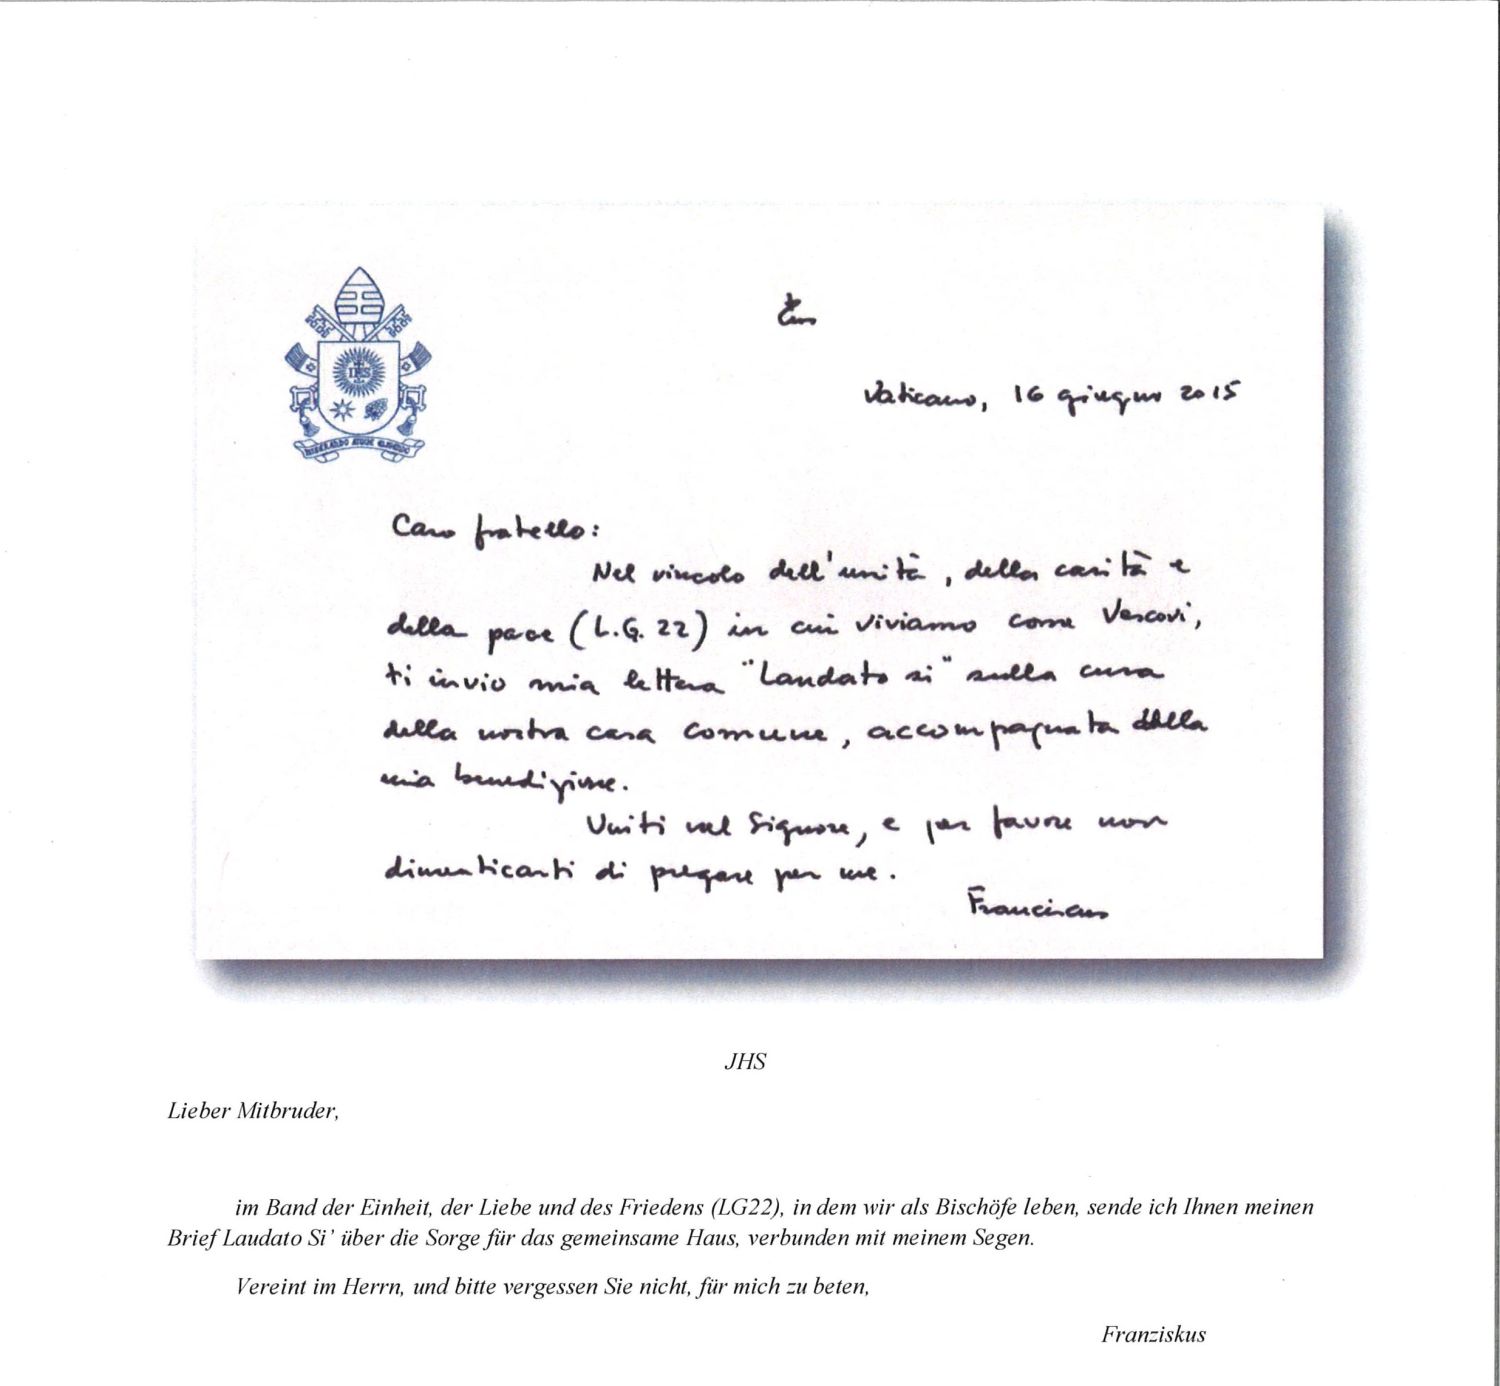 IHS
MISERANDO ATQUE ELIGENDO
Vaticano, 16 giugno 2015
Caro fratello:
Nel vincolo dell'unità, della carità e
della pace (L.G. 22) in cui viviamo come Vescovi,
ti invio mia lettera "Laudato si" sulla cura
della nostra casa comune, accompagnata della
mia benedizione.
Uniti nel Signore, e per favore non
dimenticarti di pregare per me.
Franciscus
JHS
Lieber Mitbruder,
im Band der Einheit, der Liebe und des Friedens (LG22), in dem wir als Bischöfe leben, sende ich Ihnen meinen
Brief Laudato Si’ über die Sorge für das gemeinsame Haus, verbunden mit meinem Segen.
Vereint im Herrn, und bitte vergessen Sie nicht, für mich zu beten,
Franziskus